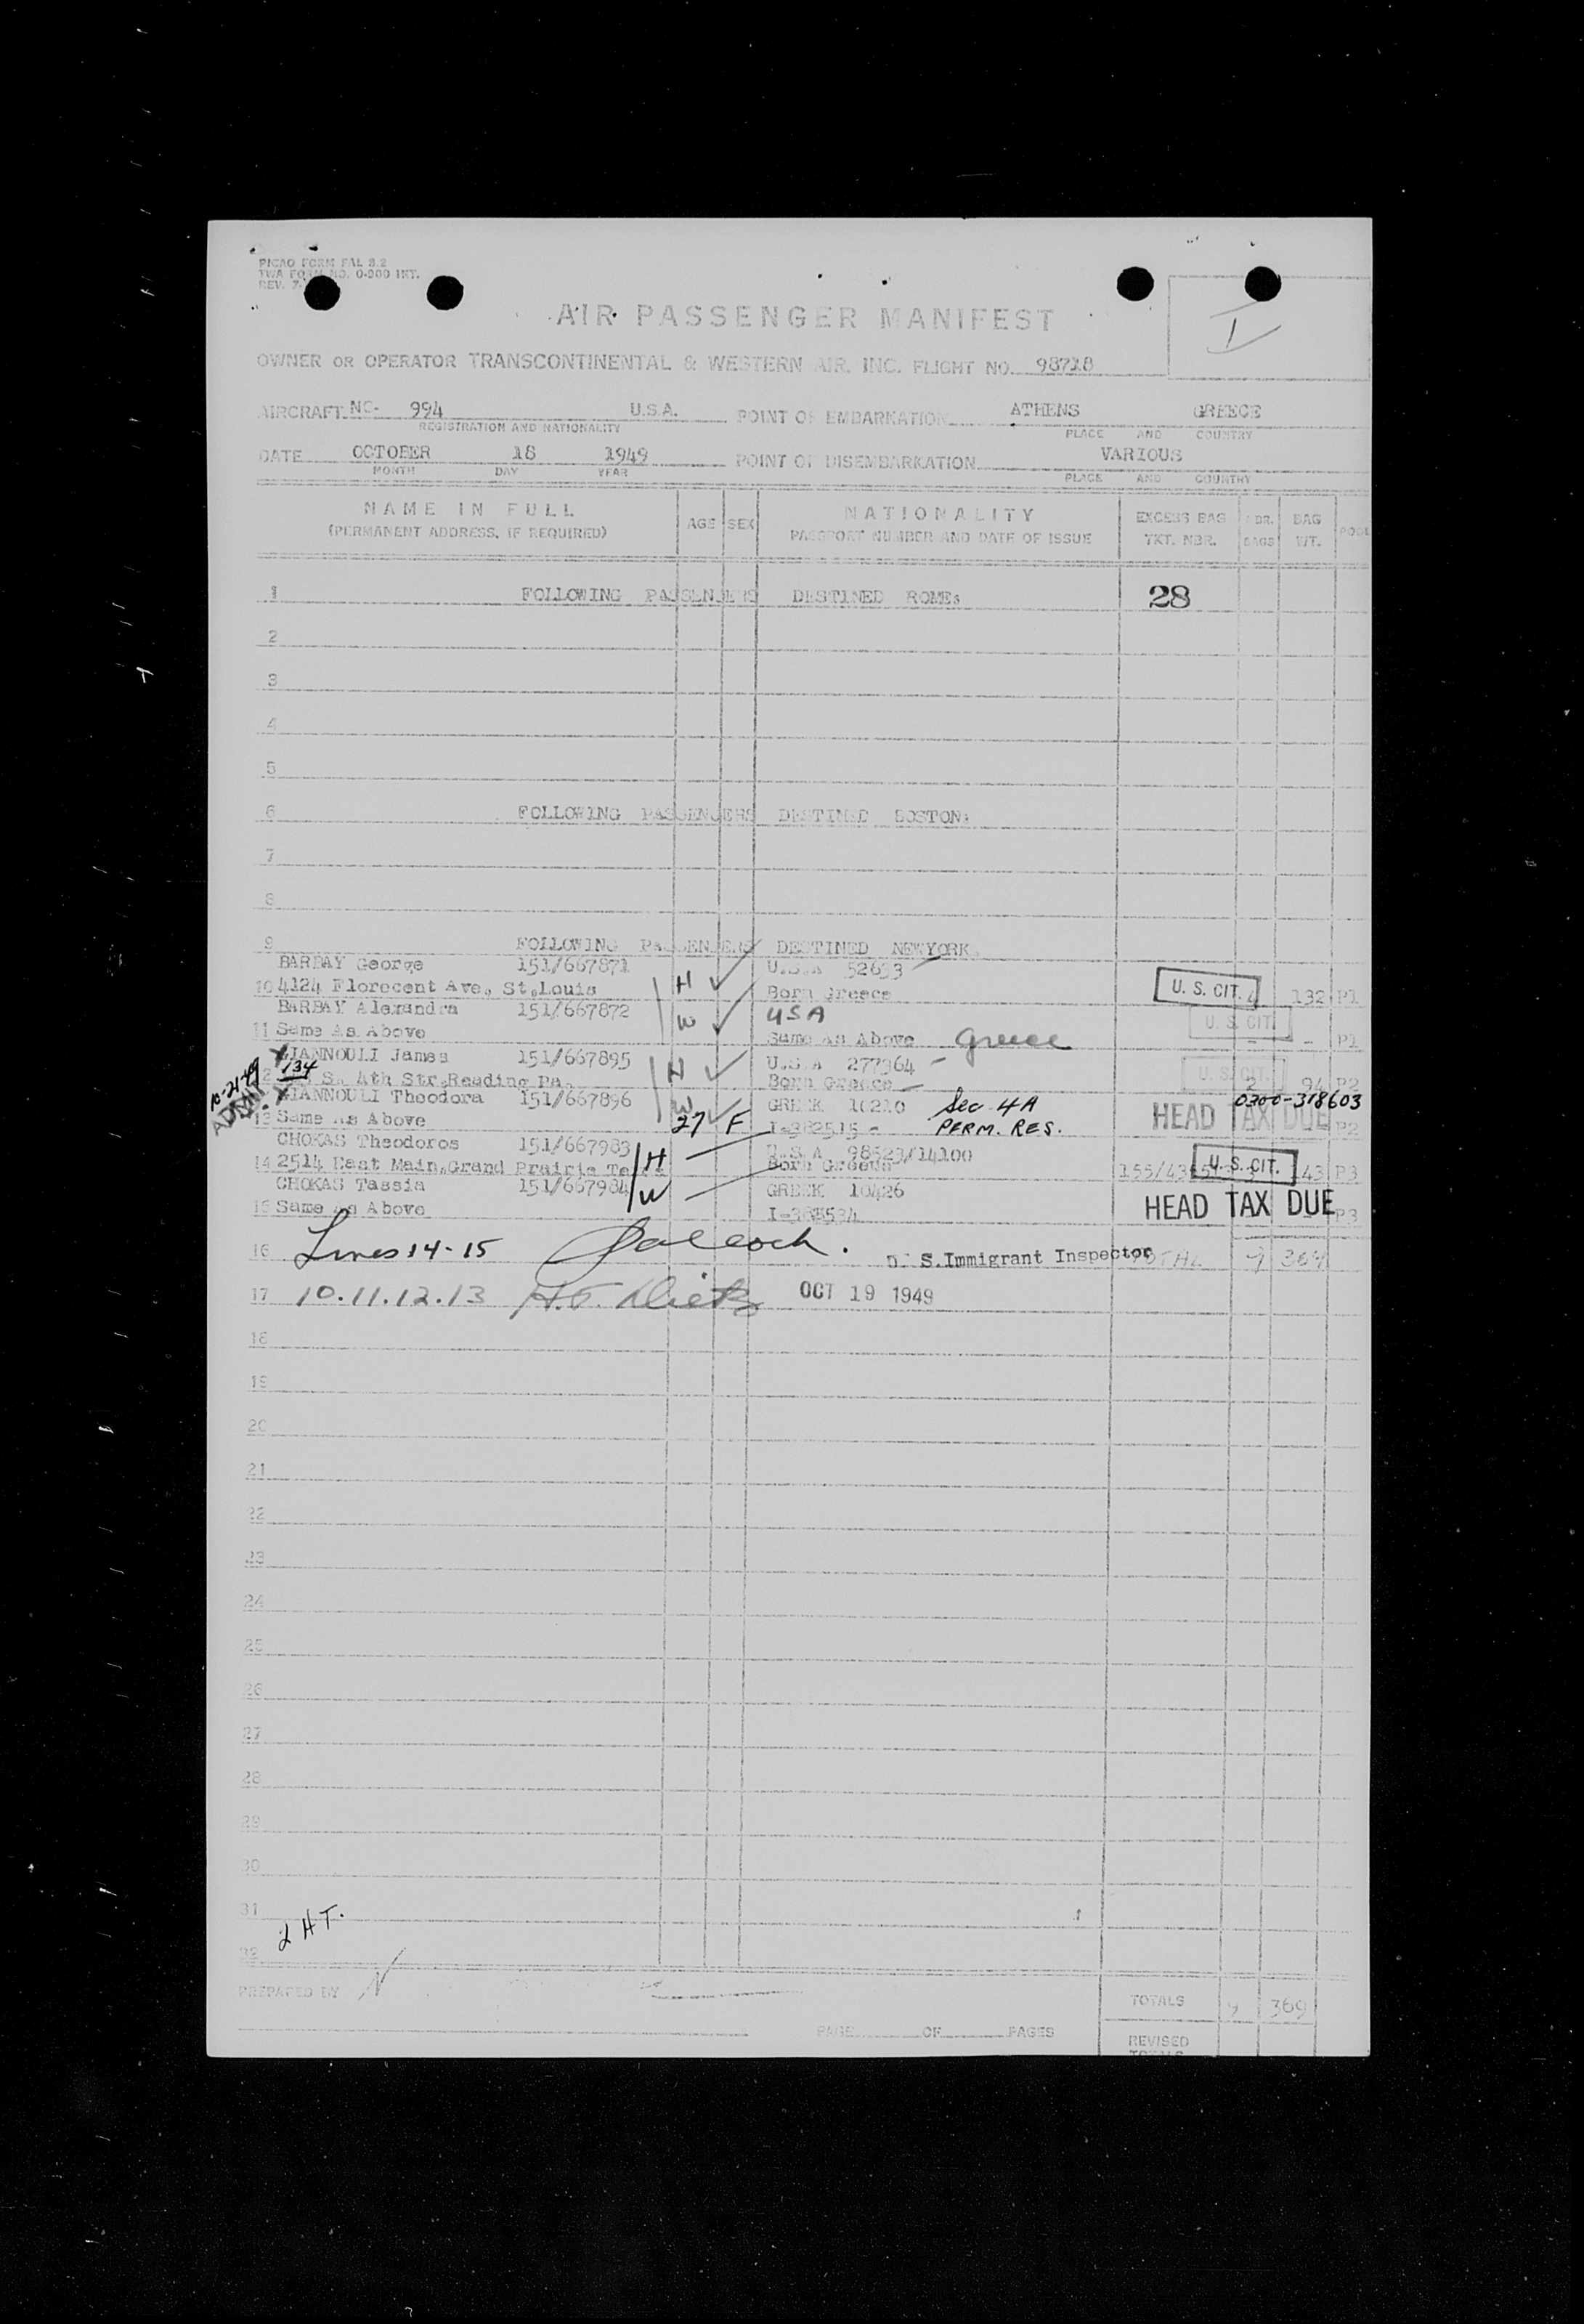 PICAO FORM FAL 3.2
TWA FORM NO. 0-200 INT.
REV. 7-
AIR PASSENGER MANIFEST
OWNER OR OPERATOR TRANSCONTINENTAL & WESTERN AIR. INC. FLIGHT NO. 98718
AIRCRAFT NC- 994 U.S.A. POINT OF EMBARKATION ATHENS GREECE
REGISTRATION AND NATIONALITY PLACE AND COUNTRY
DATE OCTOBER 18 1949 POINT OF DISEMBARKATION VARIOUS
MONTH DAY YEAR PLACE AND COUNTRY
NAME IN FULL AGE SEX NATIONALITY EXCESS BAG BAG
(PERMANENT ADDRESS, IF REQUIRED) PASSPORT NUMBER AND DATE OF ISSUE TKT. NBR. BAGS WT.
1 FOLLOWING PASSENGERS DESTINED ROME: 28
2
3
4
5
6 FOLLOWING PASSENGERS DESTINED BOSTON:
7
8
9 FOLLOWING PASSENGERS DESTINED NEWYORK
BARBAY George 151/667871 U.S.A 52633
10 4124 Florecent Ave, St.Louis H Born Greece U. S. CIT. 132 P1
BARBAY Alexandra 151/667872 USA
11 Same As Above W Same As Above Greece U. S. CIT. - - P1
GIANNOULI James 151/667895 U.S.A 277364
10-21-49 134 S. 4th Str,Reading Pa. H Born Greece U. S. CIT. 2 94 P2
GIANNOULI Theodora 151/667896 W GREEK 10210 Sec 4A 0300-318603
13 Same As Above 27 F I-382515 PERM. RES. HEAD TAX DUE P2
CHOKAS Theodoros 151/667983 U.S.A 98523/14100
14 2514 East Main,Grand Prairie H Born Greece U. S. CIT. 43 P3
CHOKAS Tassia 151/667984 W GREEK 10426
15 Same As Above HEAD TAX DUE P3
16 Lines 14-15 U. S.Immigrant Inspector TOTAL
17 10.11.12.13 H.F. Dietz OCT 19 1949
18
19
20
21
22
23
24
25
26
27
28
29
30
31
2 HT.
32
PREPARED BY TOTALS 369
PAGE OF PAGES REVISED
TOTALS